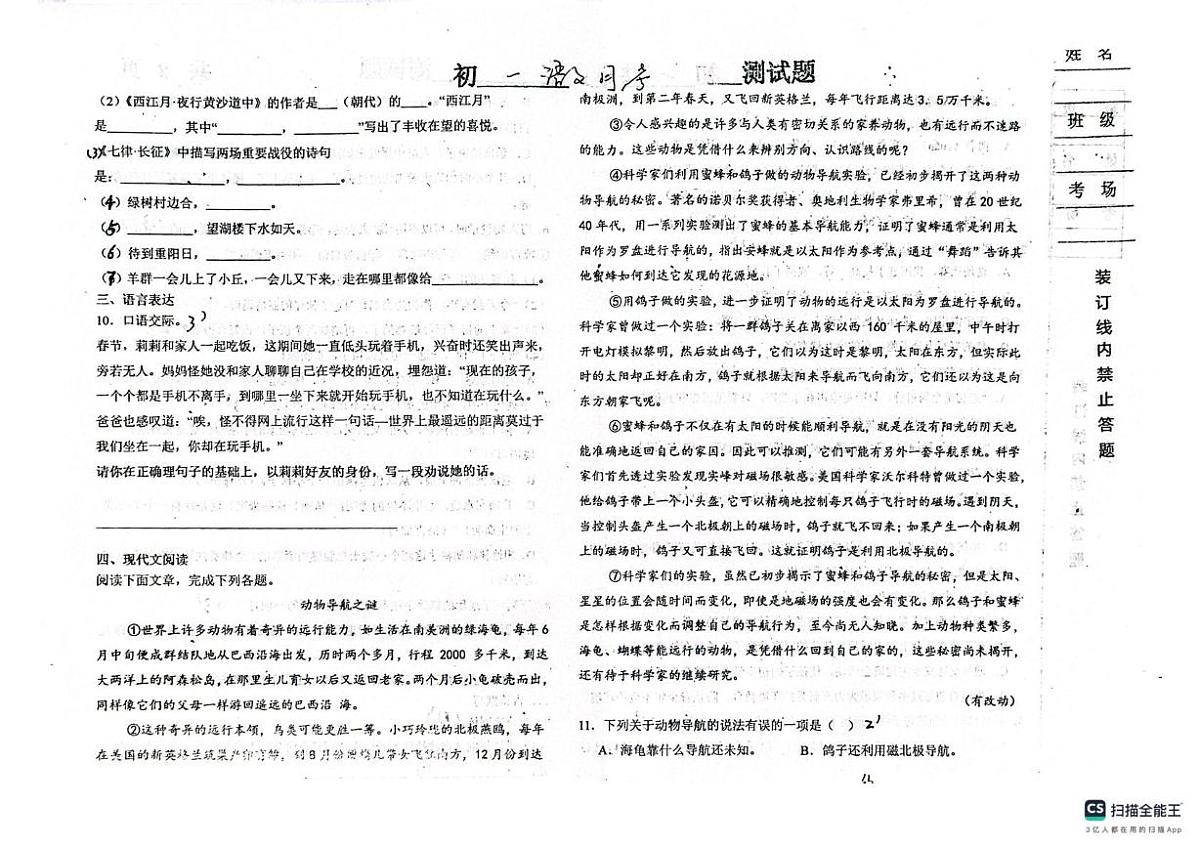 初一语文月考测试题
（2）《西江月·夜行黄沙道中》的作者是___（朝代）的___。“西江月”
是________，其中“________，________”写出了丰收在望的喜悦。
(3)《七律·长征》中描写两场重要战役的诗句
是：____________、____________。
（4）绿树村边合，________。
（5）________，望湖楼下水如天。
（6）待到重阳日，________。
（7）羊群一会儿上了小丘，一会儿又下来，走在哪里都像给____________。
三、语言表达
10．口语交际。3'
春节，莉莉和家人一起吃饭，这期间她一直低头玩着手机，兴奋时还笑出声来，
旁若无人。妈妈怪她没和家人聊聊自己在学校的近况，埋怨道：“现在的孩子，
一个个都是手机不离手，到哪里一坐下来就开始玩手机，也不知道在玩什么。”
爸爸也感叹道：“唉，怪不得网上流行这样一句话—世界上最遥远的距离莫过于
我们坐在一起，你却在玩手机。”
请你在正确理句子的基础上，以莉莉好友的身份，写一段劝说她的话。
四、现代文阅读
阅读下面文章，完成下列各题。
动物导航之谜
①世界上许多动物有着奇异的远行能力，如生活在南美洲的绿海龟，每年6
月中旬便成群结队地从巴西沿海出发，历时两个多月，行程 2000 多千米，到达
大西洋上的阿森松岛，在那里生儿育女以后又返回老家。两个月后小龟破壳而出，
同样像它们的父母一样游回遥远的巴西沿 海。
②这种奇异的远行本领，鸟类可能更胜一筹。小巧玲珑的北极燕鸥，每年
在美国的新英格兰筑巢产卵育雏，到8月份便携儿带女飞往南方，12月份到达
南极洲，到第二年春天，又飞回新英格兰，每年飞行距离达3．5万千米。
③令人感兴趣的是许多与人类有密切关系的家养动物，也有远行而不迷路
的能力。这些动物是凭借什么来辨别方向、认识路线的呢？
④科学家们利用蜜蜂和鸽子做的动物导航实验，已经初步揭开了这两种动
物导航的秘密。著名的诺贝尔奖获得者、奥地利生物学家弗里希，曾在20世纪
40年代，用一系列实验测出了蜜蜂的基本导航能力，证明了蜜蜂通常是利用太
阳作为罗盘进行导航的，指出安蜂就是以太阳作为参考点，通过“舞蹈”告诉其
他蜜蜂如何到达它发现的花源地。
⑤用鸽子做的实验，进一步证明了动物的远行是以太阳为罗盘进行导航的。
科学家曾做过一个实验：将一群鸽子关在离家以西 160 千米的屋里，中午时打
开电灯模拟黎明，然后放出鸽子，它们以为这时是黎明，太阳在东方，但实际此
时的太阳却正好在南方，鸽子就根据太阳来导航而飞向南方，它们还以为这是向
东方朝家飞呢。
⑥蜜蜂和鸽子不仅在有太阳的时候能顺利导航，就是在没有阳光的阴天也
能准确地返回自己的家园。因此可以推测，它们可能有另外一套导航系统。科学
家们首先透过实验发现实峰对磁场很敏感。美国科学家沃尔科特曾做过一个实验，
他给鸽子带上一个小头盔，它可以精确地控制每只鸽子飞行时的磁场。遇到阴天，
当控制头盔产生一个北极朝上的磁场时，鸽子就飞不回来；如果产生一个南极朝
上的磁场时，鸽子又可直接飞回。这就证明鸽子是利用北极导航的。
⑦科学家们的实验，虽然已初步揭示了蜜蜂和鸽子导航的秘密，但是太阳、
星星的位置会随时间而变化，即使是地磁场的强度也会有变化。那么鸽子和蜜蜂
是怎样根据变化而调整自己的导航行为，至今尚无人知晓。加上动物种类繁多，
海龟、蝴蝶等能远行的动物，是凭借什么回到自己的家的，这些秘密尚未揭开，
还有待于科学家的继续研究。
（有改动）
11．下列关于动物导航的说法有误的一项是（　）2'
A．海龟靠什么导航还未知。 B．鸽子还利用磁北极导航。
姓 名
班 级
考 场
装订线内禁止答题
CS 扫描全能王
3亿人都在用的扫描App